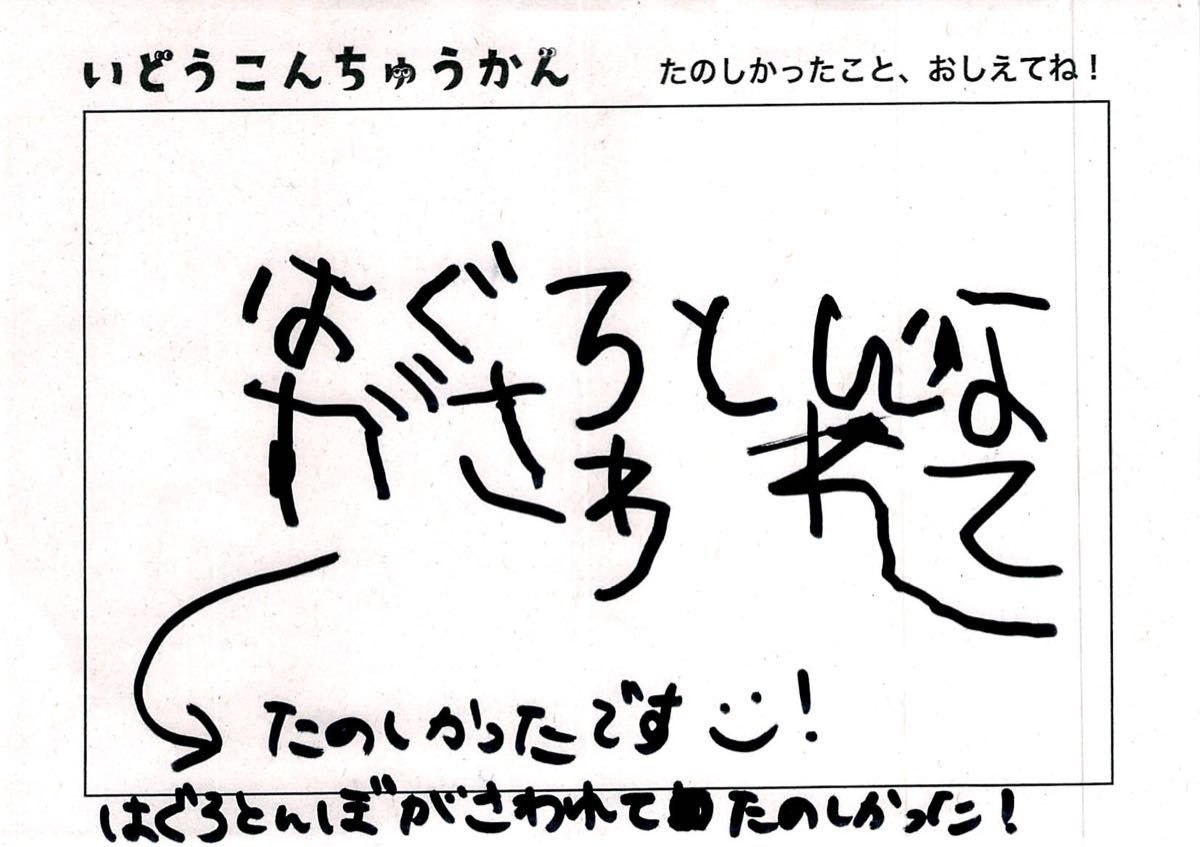 いどうこんちゅうかん
たのしかったこと、おしえてね！
はぐろとんぼ
がさわれて
たのしかったです！
はぐろとんぼがさわれてたのしかった！